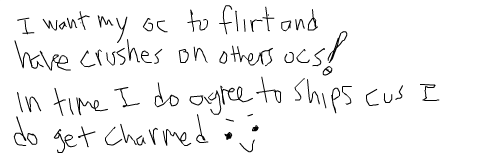 I want my oc to flirt and
have crushes on others ocs!
In time I do agree to ships cus I
do get charmed